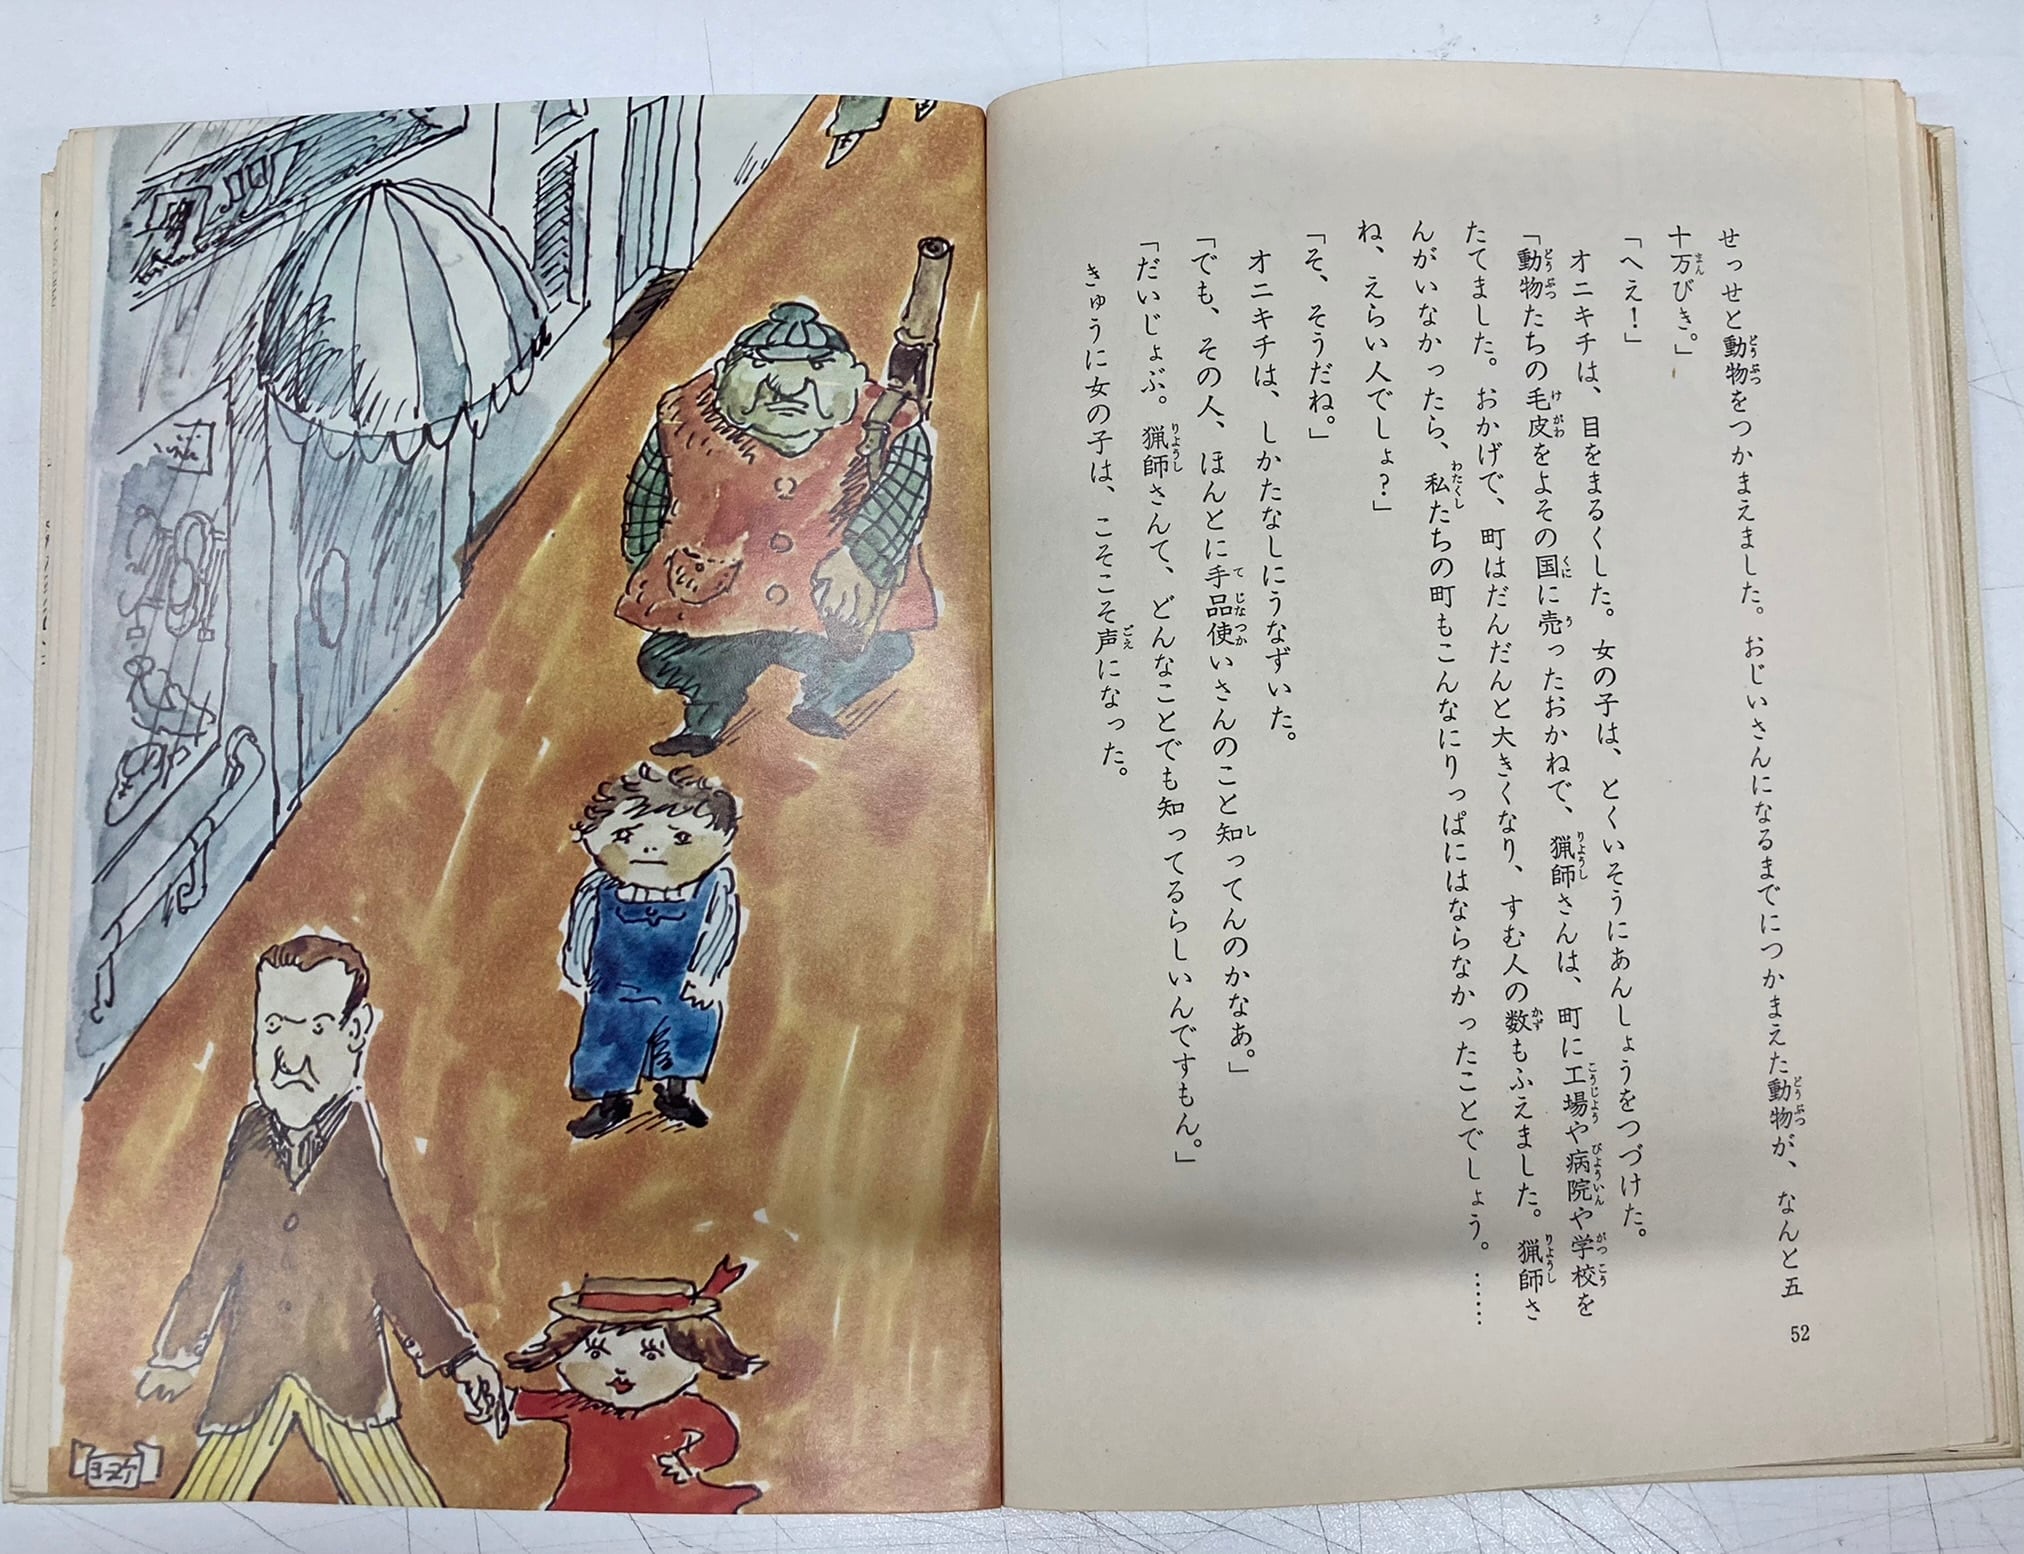 せっせと動物をつかまえました。おじいさんになるまでにつかまえた動物が、なんと五
十万びき。」
「へえ！」
オニキチは、目をまるくした。女の子は、とくいそうにあんしょうをつづけた。
「動物たちの毛皮をよその国に売ったおかねで、猟師さんは、町に工場や病院や学校を
たてました。おかげで、町はだんだんと大きくなり、すむ人の数もふえました。猟師さ
んがいなかったら、私たちの町もこんなにりっぱにはならなかったことでしょう。……
ね、えらい人でしょ？」
「そ、そうだね。」
オニキチは、しかたなしにうなずいた。
「でも、その人、ほんとに手品使いさんのこと知ってんのかなあ。」
「だいじょぶ。猟師さんて、どんなことでも知ってるらしいんですもん。」
きゅうに女の子は、こそこそ声になった。
52